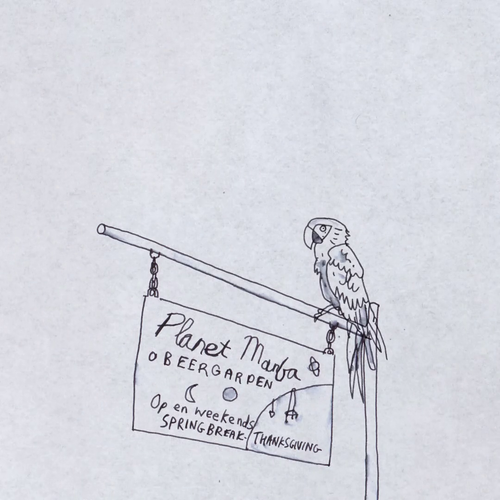 Planet Marba
OBEERGARDEN
Open weekends
SPRINGBREAK-THANKSGIVING